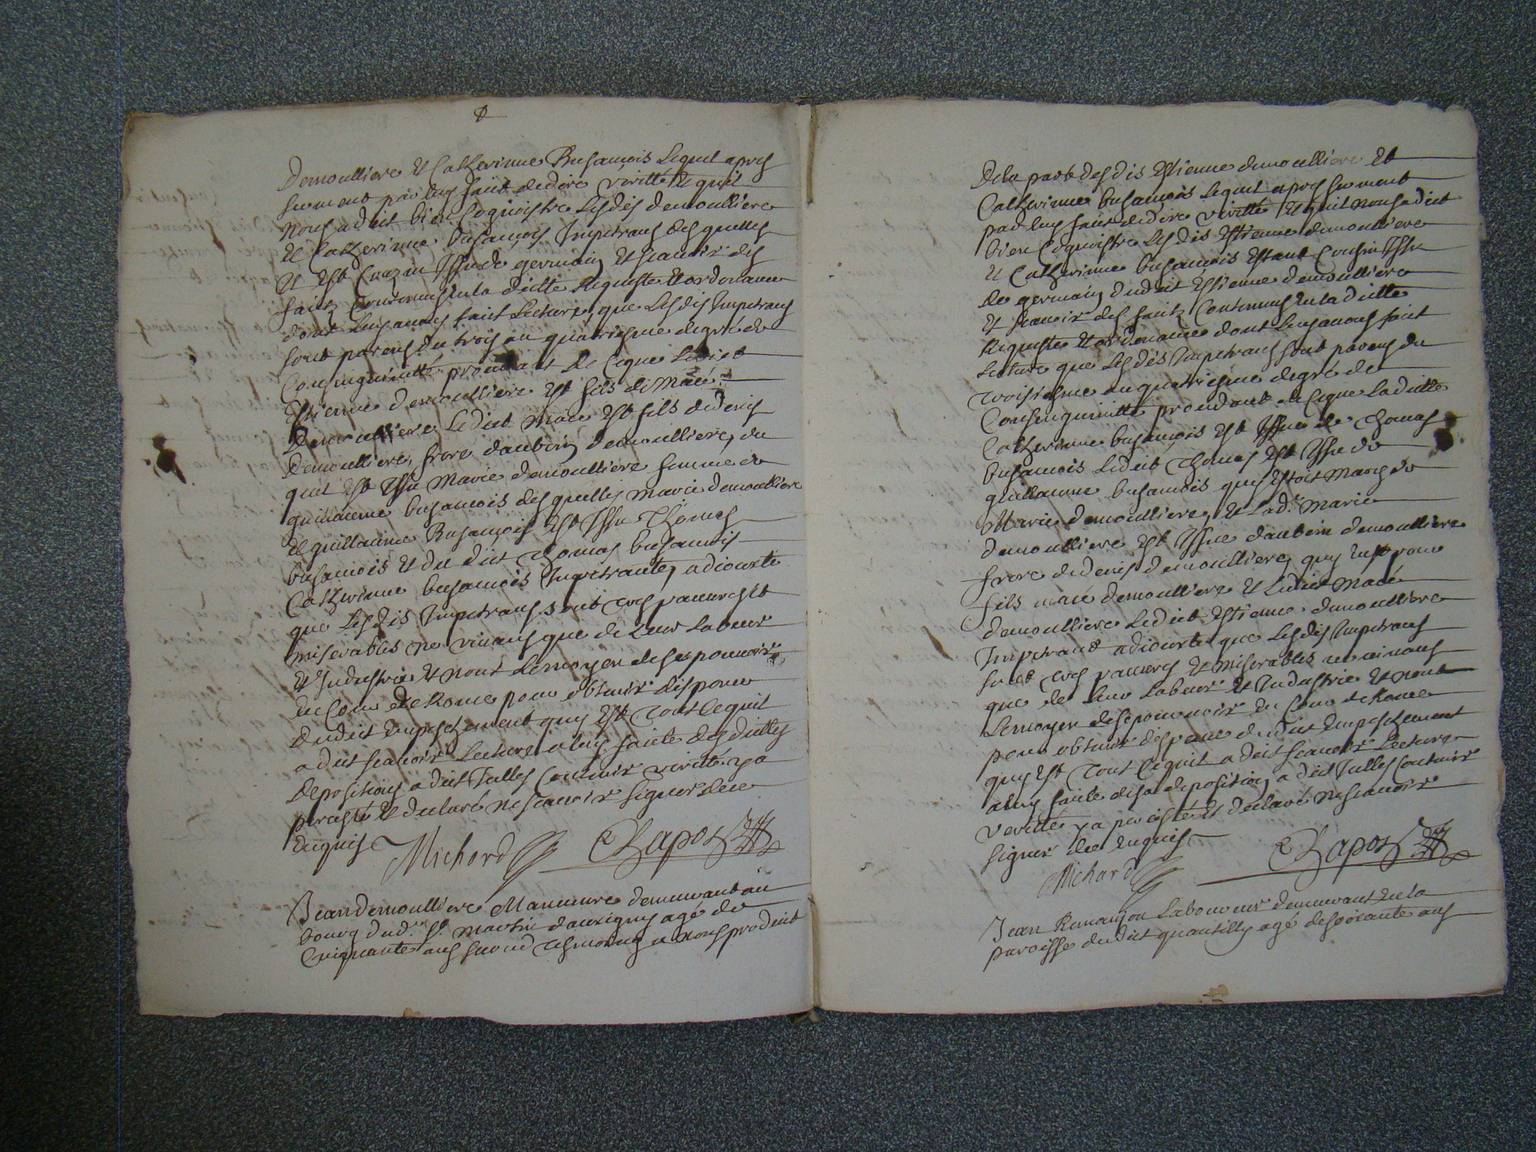 Demoulliere et Catherinne Busamois Lequel apres
serment par luy faict de dire veritté et quil
nous a dict bien cognoistre Lesdis demoulliere
et Catherinne busamois Impetrans desquelles
Il est Couzin Issu de germain et scauoir les
faictz Contenus en la dicte Requeste et ordonnance
dont luy auons faict Lecture que Lesdis Impetrans
sont parens du trois au quatriesme degré de
Consinguinitté prouenant de ce que Ledict
Estienne demoulliere est fils de Macé
Demoulliere Ledict Macé est fils de denis
demoulliere frere daubin demoulliere, du
quel est Issu Marie demoulliere femme de
guillaume busamois desquelles marie demoulliere
et guillaume Busamois est Issu Thomas
busamois et du dict Thomas busamois
Catherinne busamois Impetrante, adiouste
que Lesdis Impetrans sont tres pauures et
miserables ne viuans que de Leur Labeur
et Industrie et nont Le moyen de se pouruoir
en Cour de Rome pour obtenir dispence
dudict empeschement quy est tout ce quil
a dict scauoir Lecture a luy faicte des dittes
depositions a dict Icelles Contenir verité y a
percisté et declaré ne scauoir signer de ce
enquis
Michard Chapot
Jean demoulliere Manœuure demeurant au
bourg dud. St. Martin dauxigny agé de
Cinquante ans second tesmoing a nous produict
De la part desdis Estienne demoulliere et
Catherinne busamois Lequel apres serment
par luy faict de dire veritté et quil nous a dict
bien Cognoistre Lesdis Estienne demoulliere
et Catherinne busamois estant Cousin Issu
de germain dudict Estienne demoulliere
et scauoir les faictz Contenus en la dicte
Requeste et ordonnance dont luy auons faict
Lecture que Lesdis Impetrans sont parens du
troisiesme au quatriesme degré de
Consinguinitté prouenant de ce que Ladicte
Catherinne busamois est Issue de Thomas
busamois Ledict Thomas est Issu de
guillaume busamois quy estoit Mary de
Marie demoulliere, et Lad. Marie
demoulliere est Issue daubin demoulliere
frere de denis demoulliere, quy eust pour
fils macé demoulliere et Ledict Macé
demoulliere Ledict Estienne demoulliere
Impetrant adiouste que Lesdis Impetrans
sont tres pauures et miserables ne viuans
que de Leur Labeur et Industrie et nont
Le moyen de se pouruoir en Cour de Rome
pour obtenir dispence dudict empeschement
quy est tout ce quil a dict scauoir Lecture
a luy faicte de sa deposition a dict Icelle Contenir
veritté y a percisté et declaré ne scauoir
signer de ce enquis
Michard Chapot
Jean Laboureur demeurant en la
paroisse dudict quantilly agé de soixante ans